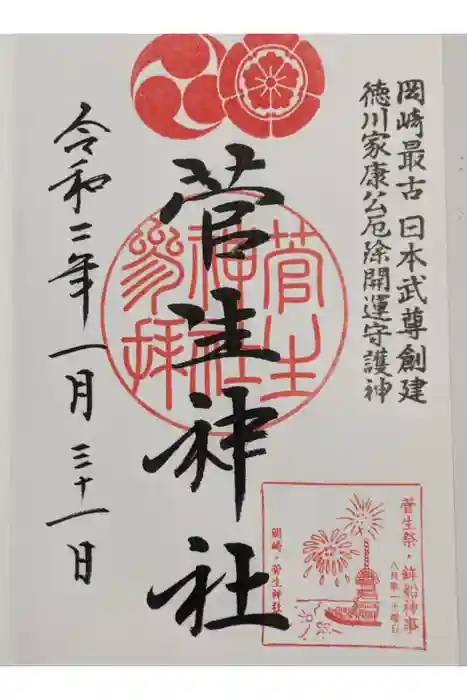 岡崎最古 日本武尊創建
徳川家康公厄除開運守護神
菅生神社
菅生神社参拝
令和二年一月三十一日
菅生祭・鉾船神事
八月第一土曜日
岡崎・菅生神社